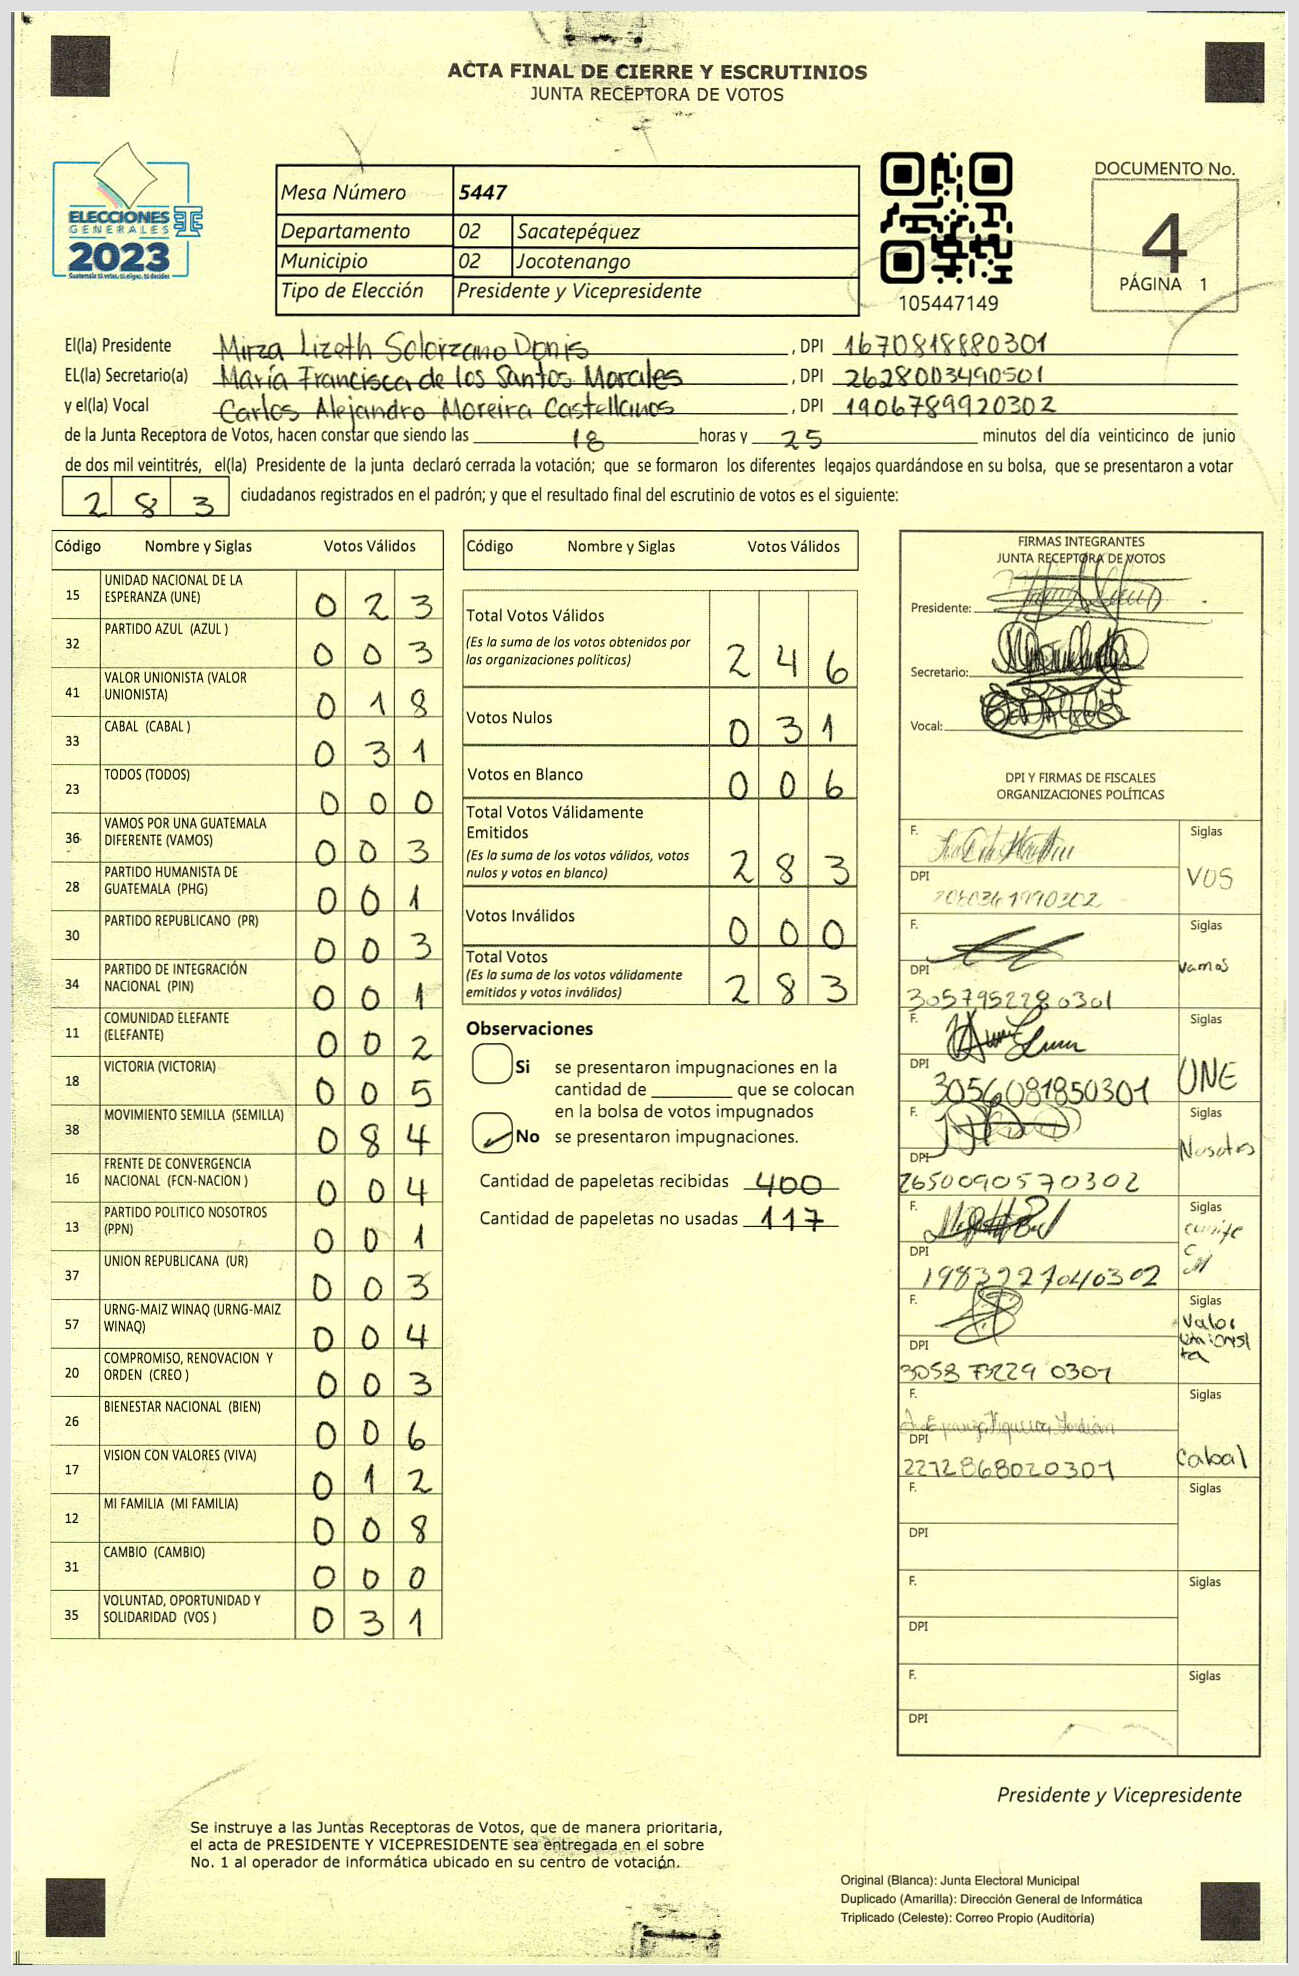 ACTA FINAL DE CIERRE Y ESCRUTINIOS
JUNTA RECEPTORA DE VOTOS
ELECCIONES
GENERALES
2023
Guatemala tú votas, tú eliges, tú decides
Mesa Número 5447
Departamento 02 Sacatepéquez
Municipio 02 Jocotenango
Tipo de Elección Presidente y Vicepresidente
105447149
DOCUMENTO No.
4
PÁGINA 1
El(la) Presidente Mirza Lizeth Solorzano Donis, DPI 1670818880301
EL(la) Secretario(a) María Francisca de los Santos Morales, DPI 2628003490501
y el(la) Vocal Carlos Alejandro Moreira Castellanos, DPI 1906789920302
de la Junta Receptora de Votos, hacen constar que siendo las 18 horas y 25 minutos del día veinticinco de junio
de dos mil veintitrés, el(la) Presidente de la junta declaró cerrada la votación; que se formaron los diferentes legajos guardándose en su bolsa, que se presentaron a votar
283 ciudadanos registrados en el padrón; y que el resultado final del escrutinio de votos es el siguiente:
Código Nombre y Siglas Votos Válidos
15 UNIDAD NACIONAL DE LA ESPERANZA (UNE) 023
32 PARTIDO AZUL (AZUL ) 003
41 VALOR UNIONISTA (VALOR UNIONISTA) 018
33 CABAL (CABAL ) 031
23 TODOS (TODOS) 000
36 VAMOS POR UNA GUATEMALA DIFERENTE (VAMOS) 003
28 PARTIDO HUMANISTA DE GUATEMALA (PHG) 001
30 PARTIDO REPUBLICANO (PR) 003
34 PARTIDO DE INTEGRACIÓN NACIONAL (PIN) 001
11 COMUNIDAD ELEFANTE (ELEFANTE) 002
18 VICTORIA (VICTORIA) 005
38 MOVIMIENTO SEMILLA (SEMILLA) 084
16 FRENTE DE CONVERGENCIA NACIONAL (FCN-NACION ) 004
13 PARTIDO POLITICO NOSOTROS (PPN) 001
37 UNION REPUBLICANA (UR) 003
57 URNG-MAIZ WINAQ (URNG-MAIZ WINAQ) 004
20 COMPROMISO, RENOVACION Y ORDEN (CREO ) 003
26 BIENESTAR NACIONAL (BIEN) 006
17 VISION CON VALORES (VIVA) 012
12 MI FAMILIA (MI FAMILIA) 008
31 CAMBIO (CAMBIO) 000
35 VOLUNTAD, OPORTUNIDAD Y SOLIDARIDAD (VOS ) 031
Código Nombre y Siglas Votos Válidos
Total Votos Válidos 246
(Es la suma de los votos obtenidos por
las organizaciones políticas)
Votos Nulos 031
Votos en Blanco 006
Total Votos Válidamente
Emitidos 283
(Es la suma de los votos válidos, votos
nulos y votos en blanco)
Votos Inválidos 000
Total Votos 283
(Es la suma de los votos válidamente
emitidos y votos inválidos)
Observaciones
Si se presentaron impugnaciones en la
cantidad de ________ que se colocan
en la bolsa de votos impugnados
No se presentaron impugnaciones.
Cantidad de papeletas recibidas 400
Cantidad de papeletas no usadas 117
FIRMAS INTEGRANTES
JUNTA RECEPTORA DE VOTOS
Presidente:
Secretario:
Vocal:
DPI Y FIRMAS DE FISCALES
ORGANIZACIONES POLÍTICAS
F. Siglas
DPI VOS
F. Siglas
DPI 3057952280301 Vamos
F. Siglas
DPI 3056081850301 UNE
F. Siglas
DPI 2650090570302 Nosotros
F. Siglas
DPI 1983227040302
F. Siglas
DPI 3058732290301 Valor Unionista
F. Siglas
DPI 2272868020301 Cabal
F. Siglas
DPI
F. Siglas
DPI
F. Siglas
DPI
Presidente y Vicepresidente
Se instruye a las Juntas Receptoras de Votos, que de manera prioritaria,
el acta de PRESIDENTE Y VICEPRESIDENTE sea entregada en el sobre
No. 1 al operador de informática ubicado en su centro de votación.
Original (Blanca): Junta Electoral Municipal
Duplicado (Amarilla): Dirección General de Informática
Triplicado (Celeste): Correo Propio (Auditoría)